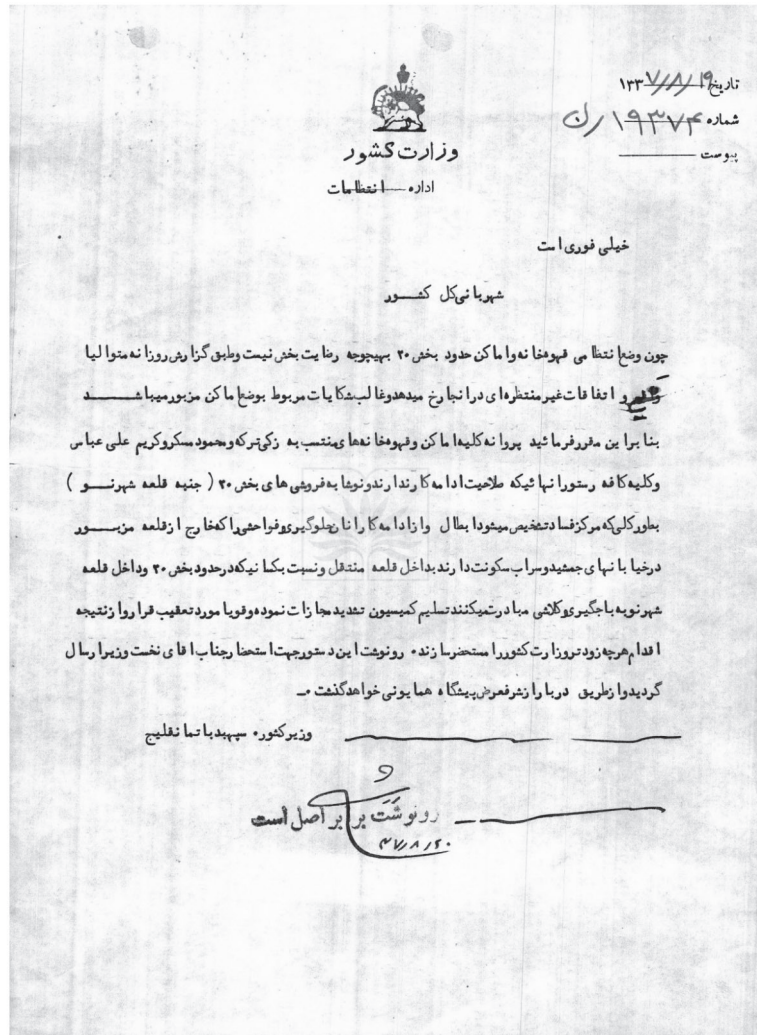 تاریخ ۱۳۳۷/۸/۱۹
شماره ۱۹۳۷۴/ن
پیوست
وزارت کشور
اداره انتظامات
خیلی فوری است
شهربانی کل کشور
چون وضع انتظامی قهوه خانه و اماکن حدود بخش ۲۰ بهیچوجه رضایت بخش نیست و طبق گزارش روزانه متوالیا
و اتفاقات غیر منتظره ای در انجا رخ میدهد و غالب شکایات مربوط بوضع اماکن مزبور میباشد
بنابراین مقرر فرمائید پروانه کلیه اماکن و قهوه خانه های منتسب به زکی ترکه و محمود مسگر و کریم علی عباس
و کلیه کافه رستورانهائیکه صلاحیت ادامه کار ندارند و نوشابه فروشی های بخش ۲۰ ( جنبه قلعه شهرنو )
بطور کلی که مرکز فساد تشخیص میشود ابطال و از ادامه کار انان جلوگیری و فواحشی را که خارج از قلعه مزبور
در خیابانهای جمشید و سراب سکونت دارند بداخل قلعه منتقل و نسبت بکسانیکه در حدود بخش ۲۰ و داخل قلعه
شهرنو به باجگیری و کلاشی مبادرت میکنند تسلیم کمیسیون تشدید مجازات نموده و قویا مورد تعقیب قرار و از نتیجه
اقدام هر چه زودتر وزارت کشور را مستحضر سازند. رونوشت این دستور جهت استحضار جناب اقای نخست وزیر ارسال
گردید و از طریق دربار از شرفعرض پیشگاه همایونی خواهد گذشت .ـ
وزیر کشور. سپهبد باتمانقلیج
رونوشت برابر اصل است
۳۷/۸/۲۰